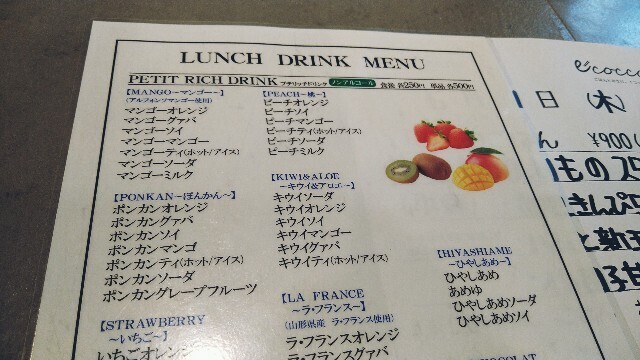 LUNCH DRINK MENU
PETIT RICH DRINK プチリッチドリンク ノンアルコール 食後 各250円 単品 各500円
【MANGO～マンゴー～】
(アルフォンソマンゴー使用)
マンゴーオレンジ
マンゴーグァバ
マンゴーソイ
マンゴーマンゴー
マンゴーティ(ホット/アイス)
マンゴーソーダ
マンゴーミルク
【PONKAN～ぽんかん～】
ポンカンオレンジ
ポンカングァバ
ポンカンソイ
ポンカンマンゴ
ポンカンティ(ホット/アイス)
ポンカンソーダ
ポンカングレープフルーツ
【STRAWBERRY
～いちご～】
いちごオレンジ
【PEACH～桃～】
ピーチオレンジ
ピーチソイ
ピーチマンゴー
ピーチティ(ホット/アイス)
ピーチソーダ
ピーチミルク
【KIWI&ALOE
～キウイ&アロエ～】
キウイソーダ
キウイオレンジ
キウイソイ
キウイマンゴー
キウイグァバ
キウイティ(ホット/アイス)
【LA FRANCE
～ラ・フランス～】
(山形県産 ラ・フランス使用)
ラ・フランスオレンジ
ラ・フランスグァバ
【HIYASHIAME
～ひやしあめ～】
ひやしあめ
あめゆ
ひやしあめソーダ
ひやしあめソイ
cocco
日 (木)
ん ¥900
ものス
きんぴ
と新